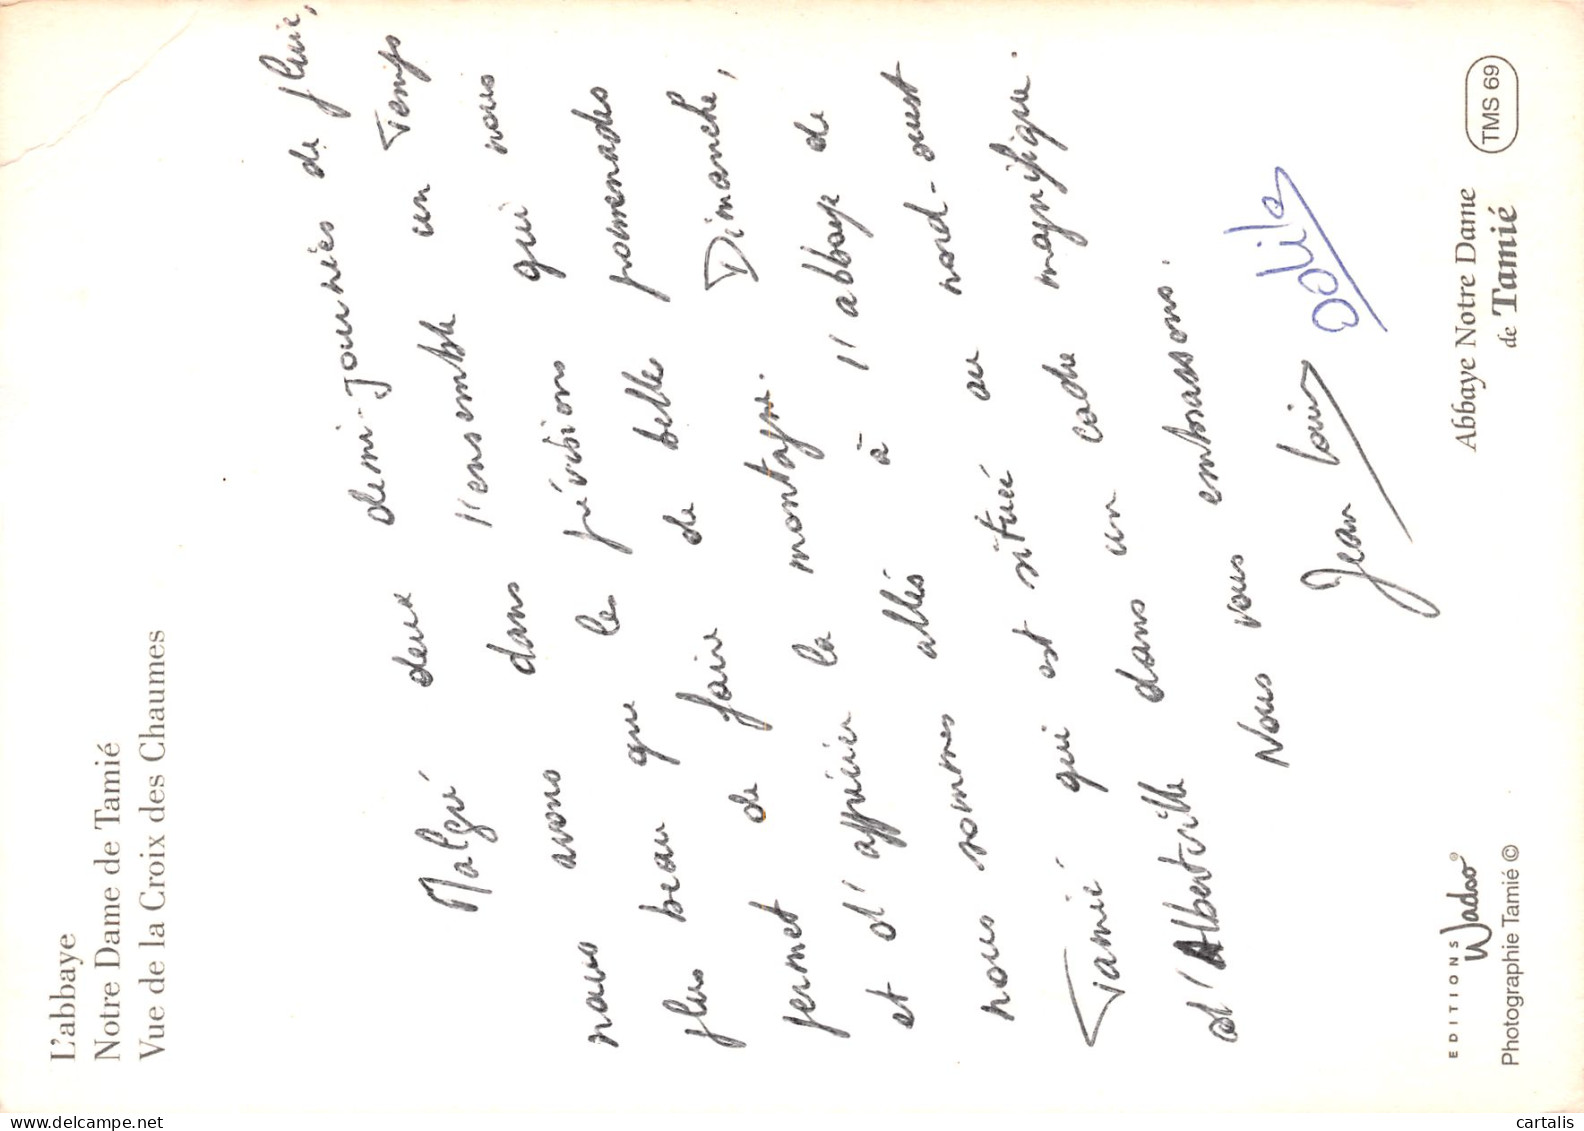 L'abbaye
Notre Dame de Tamié
Vue de la Croix des Chaumes
Malgré deux demi-journées de pluie,
nous avons dans l'ensemble un Temps
plus beau que les prévisions qui nous
permet de faire de belles promenades
et d'apprécier la montagne. Dimanche,
nous sommes allés à l'abbaye de
Tamié qui est située au nord-ouest
d'Albertville dans un cadre magnifique.
Nous vous embrassons.
Jean Louis Odile
EDITIONS Wadoo®
Photographie Tamié ©
Abbaye Notre Dame
de Tamié
TMS 69
cartalis